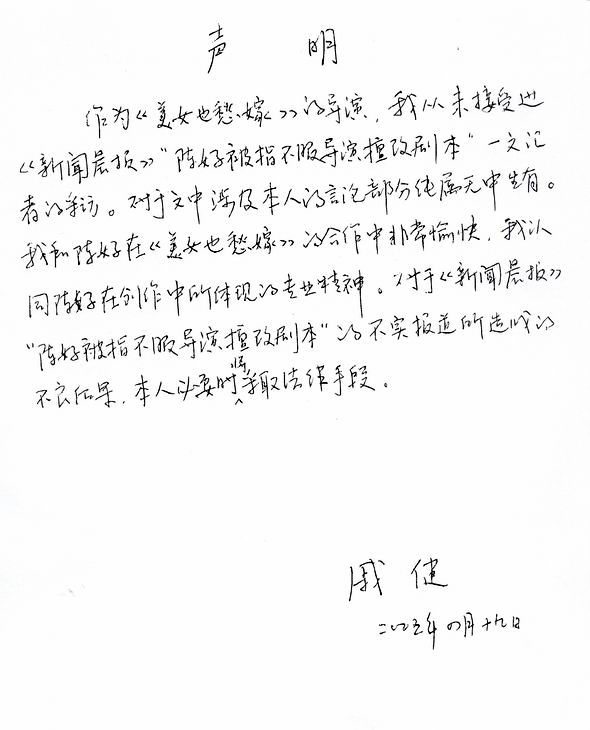 声 明
作为《美女也愁嫁》的导演，我从未接受过
《新闻晨报》"陈好被指不服导演擅改剧本"一文记
者的采访。对于文中涉及本人的言论部分纯属无中生有。
我和陈好在《美女也愁嫁》的合作中非常愉快，我认
同陈好在创作中的体现的专业精神。对于《新闻晨报》
"陈好被指不服导演擅改剧本"的不实报道所造成的
不良后果，本人必要时将采取法律手段。
戚健
二〇〇五年四月十九日